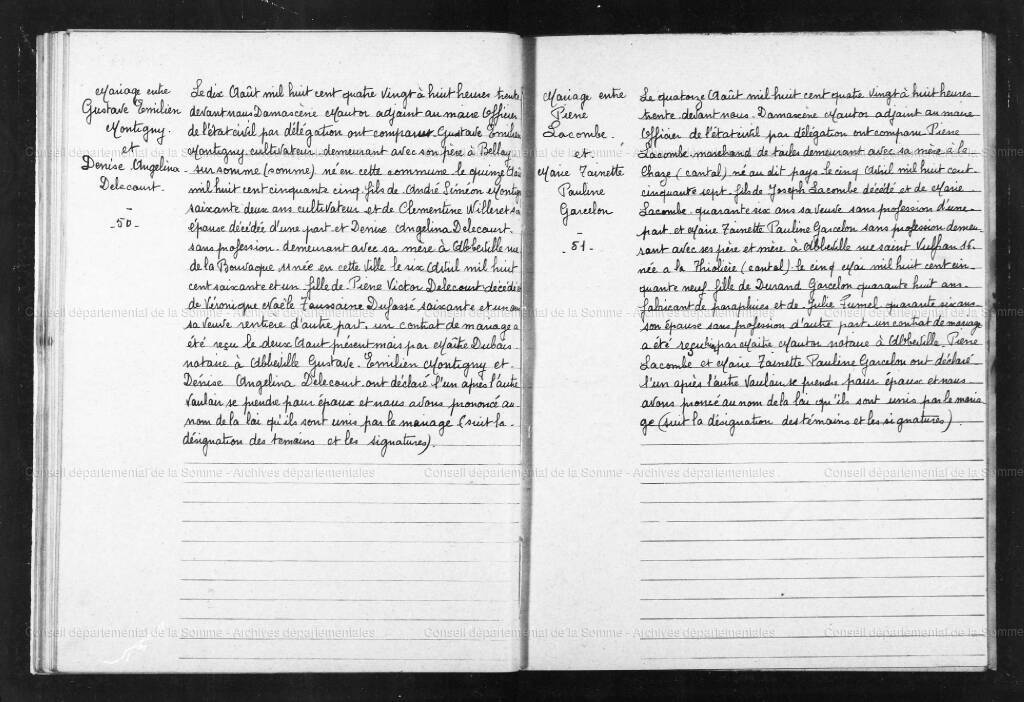 Mariage entre
Gustave Emilien
Montigny.
et
Denise Angelina
Delecourt.
-50-
Le dix Août mil huit cent quatre vingt à huit heures trente
devant nous Damascène Mautor adjoint au maire Officier
de l'état civil par délégation ont comparu Gustave Emilien
Montigny cultivateur demeurant avec son père à Belloy
sur somme (somme) né en cette commune le quinze
mil huit cent cinquante cinq fils de André Siméon Montigny
soixante deux ans cultivateur et de Clementine Willeret sa
épouse décédée d'une part et Denise Angelina Delecourt
sans profession demeurant avec sa mère à Abbeville rue
de la Bouvaque née en cette ville le six Avril mil huit
cent soixante et un fille de Pierre Victor Delecourt décédé
de Véronique Toussaine Dufossé soixante et un ans
sa veuve rentière d'autre part un contrat de mariage a
été reçu le deux Août présent mois par Maître Dubois
notaire à Abbeville Gustave Emilien Montigny et
Denise Angelina Delecourt ont déclaré l'un après l'autre
vouloir se prendre pour époux et nous avons prononcé au
nom de la loi qu'ils sont unis par le mariage (suit la
désignation des temoins et les signatures).
Mariage entre
Pierre
Lacombe.
et
Marie Toinette
Pauline
Garcelon
-51-
Le quatorze Août mil huit cent quatre vingt à huit heures
trente devant nous Damascène Mautor adjoint au maire
Officier de l'état civil par délégation ont comparu Pierre
Lacombe marchand de toiles demeurant avec sa mère à le
Chaze (cantal) né au dit pays le cinq Avril mil huit cent
cinquante sept fils de Joseph Lacombe décédé et de Marie
Lacombe quarante six ans sa veuve sans profession d'une
part et Marie Toinette Pauline Garcelon sans profession demeu-
rant avec ses père et mère à Abbeville rue saint Vulfran 16
née a la Thiolière (cantal) le cinq Mai mil huit cent cin
quante neuf fille de Durand Garcelon quarante huit ans
fabricant de parapluies et de Julie Fumel quarante six ans
son épouse sans profession d'autre part un contrat de mariage
a été reçu par Maître Mautor notaire à Abbeville Pierre
Lacombe et Marie Toinette Pauline Garcelon ont déclaré
l'un après l'autre vouloir se prendre pour époux et nous
avons proncé au nom de la loi qu'ils sont unis par le maria
ge (suit la désignation des témoins et les signatures).
Conseil départemental de la Somme - Archives départementales